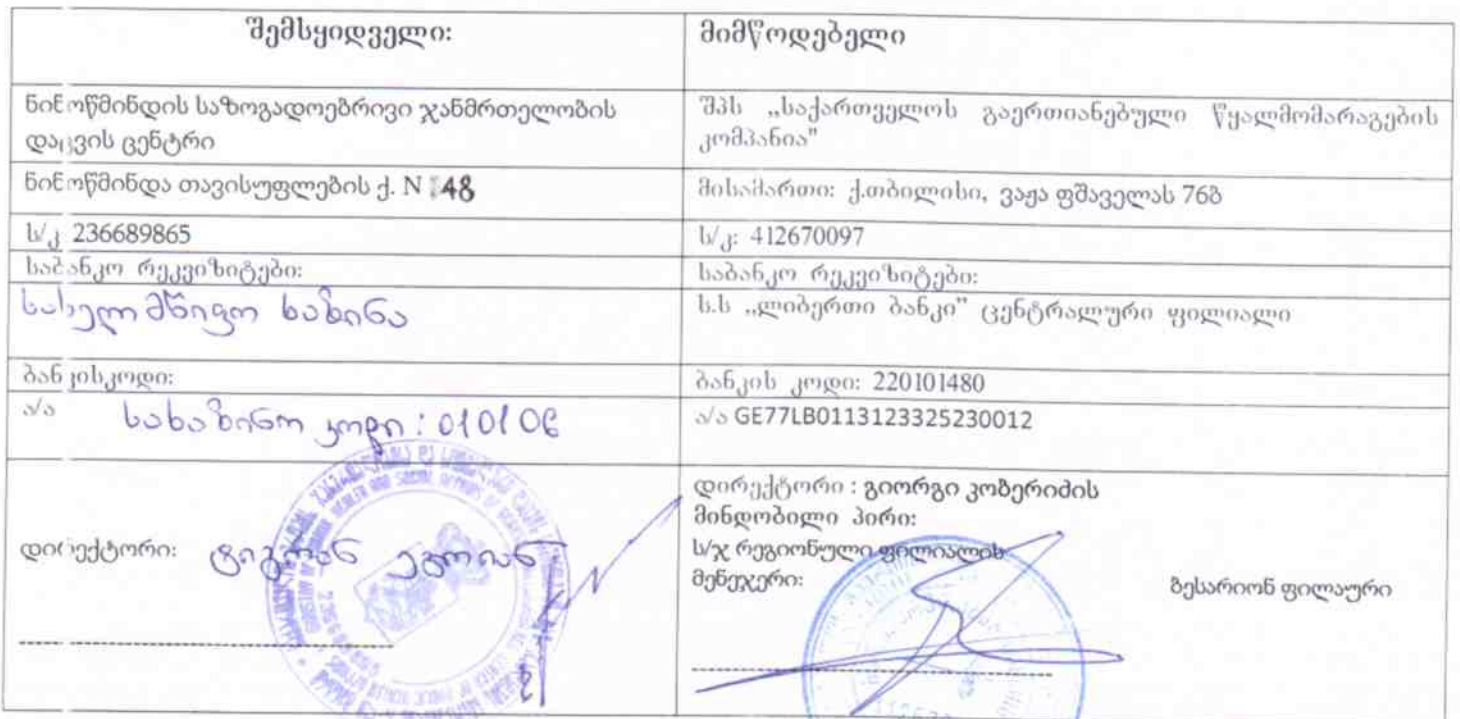 შემსყიდველი:
მიმწოდებელი
ნინოწმინდის საზოგადოებრივი ჯანმრთელობის
დაცვის ცენტრი
შპს „საქართველოს გაერთიანებული წყალმომარაგების
კომპანია"
ნინოწმინდა თავისუფლების ქ. N 48
მისამართი: ქ.თბილისი, ვაჟა ფშაველას 76ბ
ს/კ 236689865
ს/კ: 412670097
საბანკო რეკვიზიტები:
საბანკო რეკვიზიტები:
სახელმწიფო ხაზინა
ს.ს „ლიბერთი ბანკი" ცენტრალური ფილიალი
ბანკისკოდი:
ბანკის კოდი: 220101480
ა/ა სახაზინო კოდი: 010106
ა/ა GE77LB0113123325230012
დირექტორი : გიორგი კობერიძის
მინდობილი პირი:
ს/ჯ რეგიონული ფილიალის
მენეჯერი: ბესარიონ ფილაური
დირექტორი: ტიგრან